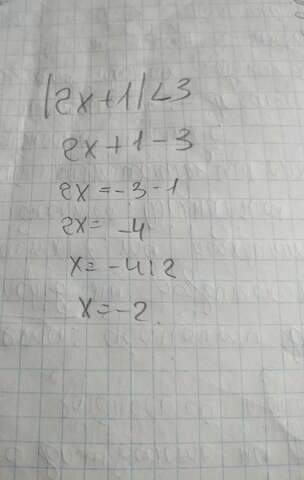 |2x+1|<3
2x+1-3
2x=-3-1
2x= -4
x=-4:2
x=-2.